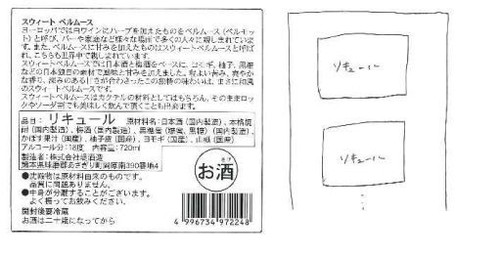 スウィート ベルムース
ヨーロッパでは白ワインにハーブを加えたものをベルムース（ベルモッ
ト）と呼び、バーや家庭など様々な場所で多くの人々に親しまれていま
す。また、ベルムースに甘みを加えたものはスウィートベルムースと呼ば
れ、こちらも世界中で親しまれています。
スウィートベルムースでは日本酒と梅酒をベースに、よもぎ、柚子、黒糖
などの日本独自の素材で風味と甘みを加えました。
スウィートベルムースです。
スウィートベルムースはカクテルの材料としてはもちろん、そのままロッ
クやソーダ割でも美味しく飲んで頂くことも出来ます。
品目：リキュール 原材料名：日本酒（国内製造）、本格焼
酎（国内製造）、梅酒（国内製造）、黒糖蜜（糖蜜、黒糖）（国内製造）、
かぼす果汁（国産）、柚子皮（国産）、ヨモギ（国産）、山椒（国産）
アルコール分：18度 内容量：720ml
製造者：株式会社堤酒造
熊本県球磨郡あさぎり町岡原南390番地4
●沈殿物は原材料由来のものです。
品質に問題ありません。
●中身が分離することがございます。
よく振ってお飲みください。
開封後要冷蔵
お酒は二十歳になってから
お酒
4 996734 972248
リキュール
リキュール